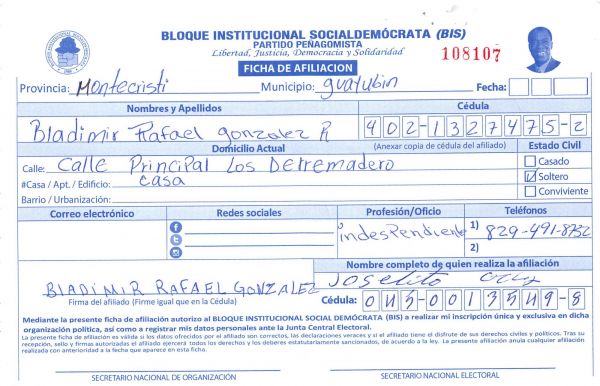 BLOQUE INSTITUCIONAL SOCIALDEMÓCRATA (BIS)
PARTIDO PEÑAGOMISTA
Libertad, Justicia, Democracia y Solidaridad
108107
FICHA DE AFILIACION
Provincia: Montecristi Municipio: guayubin Fecha:
Nombres y Apellidos Cédula
Bladimir Rafael gonzalez R 402-1327475-2
Domicilio Actual (Anexar copia de cédula del afiliado) Estado Civil
Calle: Calle Principal Los Detremadero Casado
#Casa / Apt. / Edificio: casa Soltero
Barrio / Urbanización: Conviviente
Correo electrónico Redes sociales Profesión/Oficio Teléfonos
indesPendiente 1) 829-491-8732
2)
Nombre completo de quien realiza la afiliación
BLADIMIR RAFAEL GONZALEZ Joselito
Firma del afiliado (Firme igual que en la Cédula) Cédula: 045-0013549-8
Mediante la presente ficha de afiliación autorizo al BLOQUE INSTITUCIONAL SOCIAL DEMÓCRATA (BIS) a realizar mi inscripción única y exclusiva en dicha
organización política, así como a registrar mis datos personales ante la Junta Central Electoral.
La presente ficha de afiliación es válida si los datos ofrecidos por el afiliado son correctos, las declaraciones veraces y si el afiliado tiene el disfrute de sus derechos civiles y políticos. Tras su
recepción, sello y firmas autorizadas el afiliado ejercerá todos los derechos y deberes estatutariamente sancionados, de acuerdo a la ley. La presente afiliación anula cualquier afiliación
realizada con anterioridad a la fecha que aparece en esta ficha.
SECRETARIO NACIONAL DE ORGANIZACIÓN SECRETARIO NACIONAL ELECTORAL